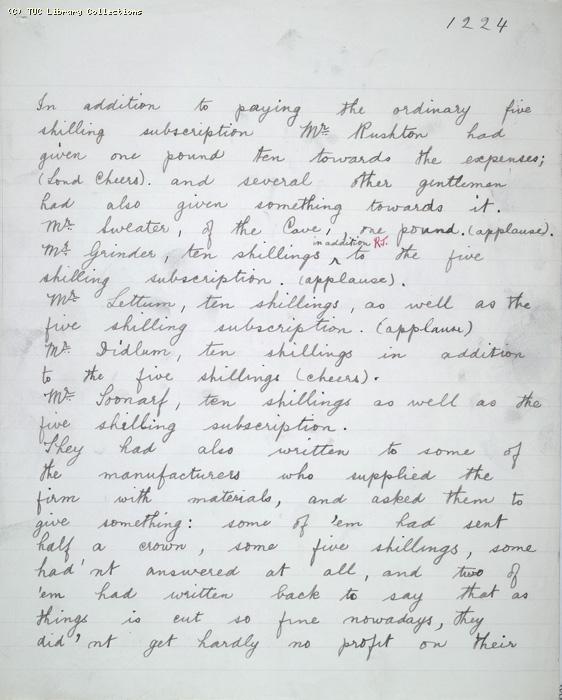 (C) TUC Library Collections
1224
In addition to paying the ordinary five
shilling subscription Mr Rushton had
given one pound ten towards the expenses;
(Loud Cheers). and several other gentlemen
had also given something towards it.
Mr Sweater, of the Cave, one pound. (applause).
in addition R.T.
Mr Grinder, ten shillings ‸ to the five
shilling subscription. (applause).
Mr Lettum, ten shillings, as well as the
five shilling subscription. (applause)
Mr Didlum, ten shillings in addition
to the five shillings (cheers).
Mr Toonarf, ten shillings as well as the
five shilling subscription.
They had also written to some of
the manufacturers who supplied the
firm with materials, and asked them to
give something: some of 'em had sent
half a crown, some five shillings, some
had'nt answered at all, and two of
'em had written back to say that as
things is cut so fine nowadays, they
did'nt get hardly no profit on their